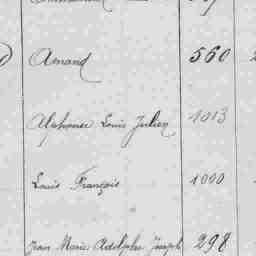 Amand 560
Alphonse Louis Julien 1013
Louis François 1000
Jean Marie Adolphe Joseph 298